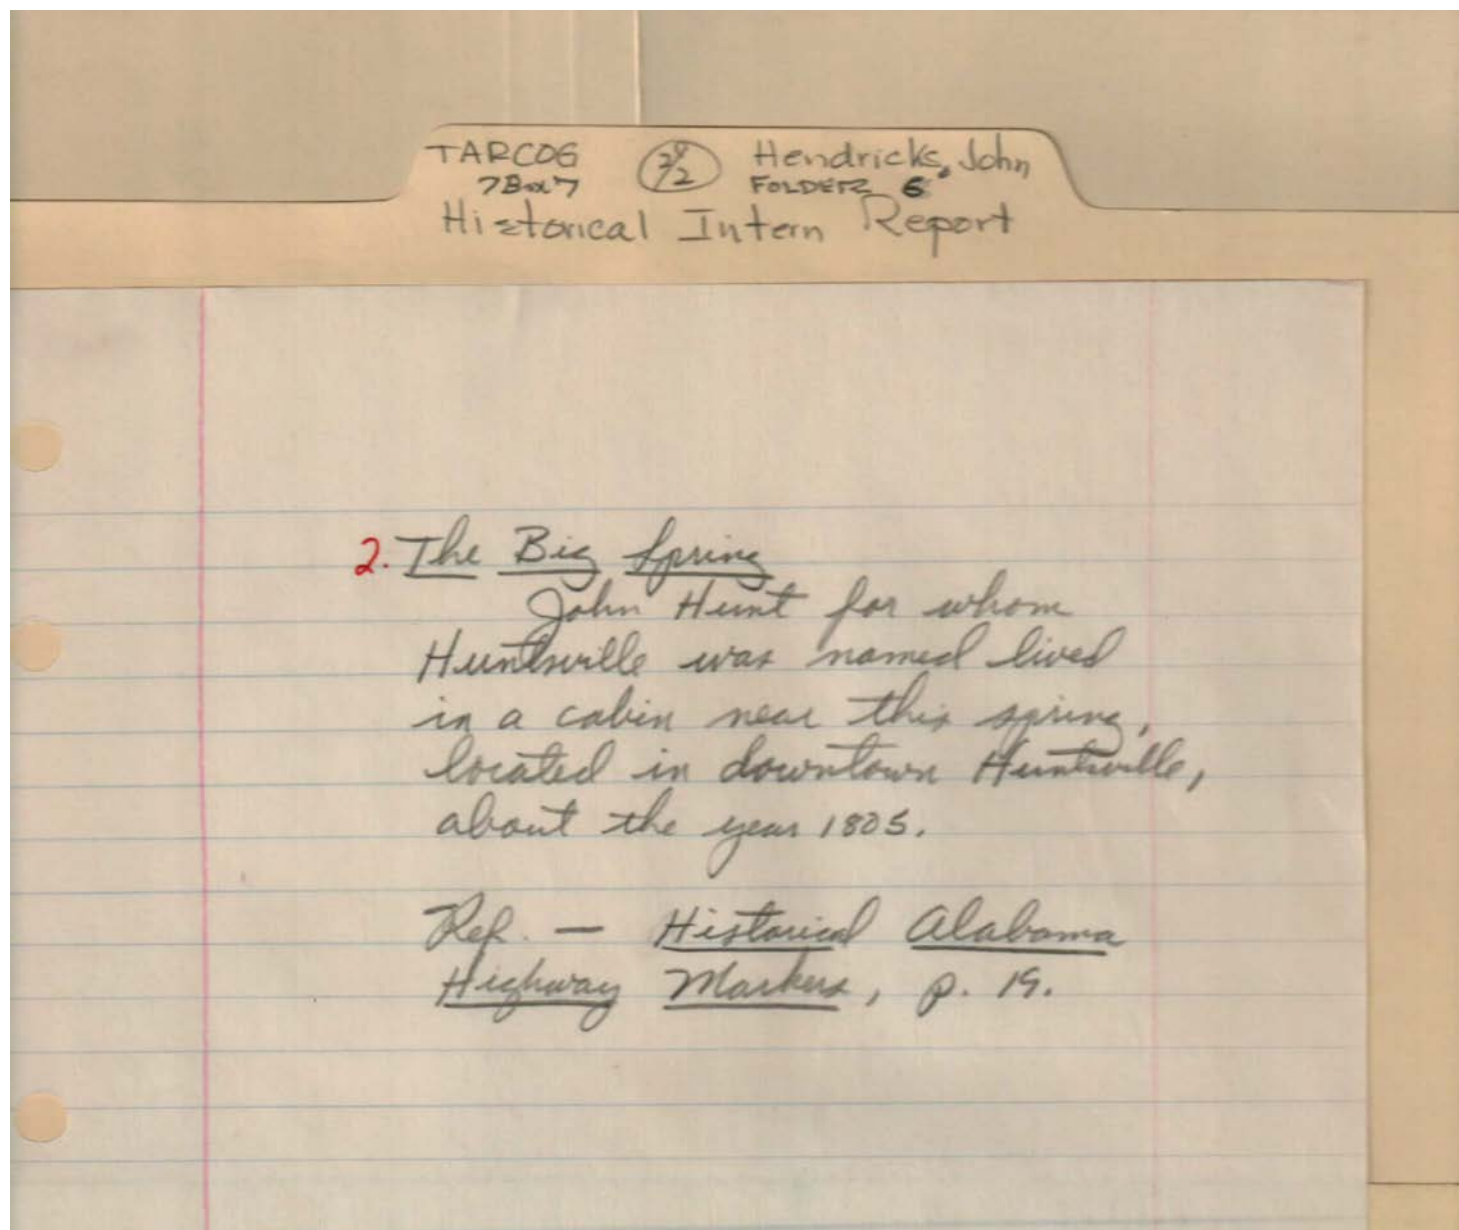 TARCOG 2 of 2 Hendricks, John
7Box7 FOLDER 6
Historical Intern Report
2. The Big Spring
John Hunt for whom
Huntsville was named lived
in a cabin near this spring,
located in downtown Huntsville,
about the year 1805.
Ref. — Historical Alabama
Highway Markers, p. 19.